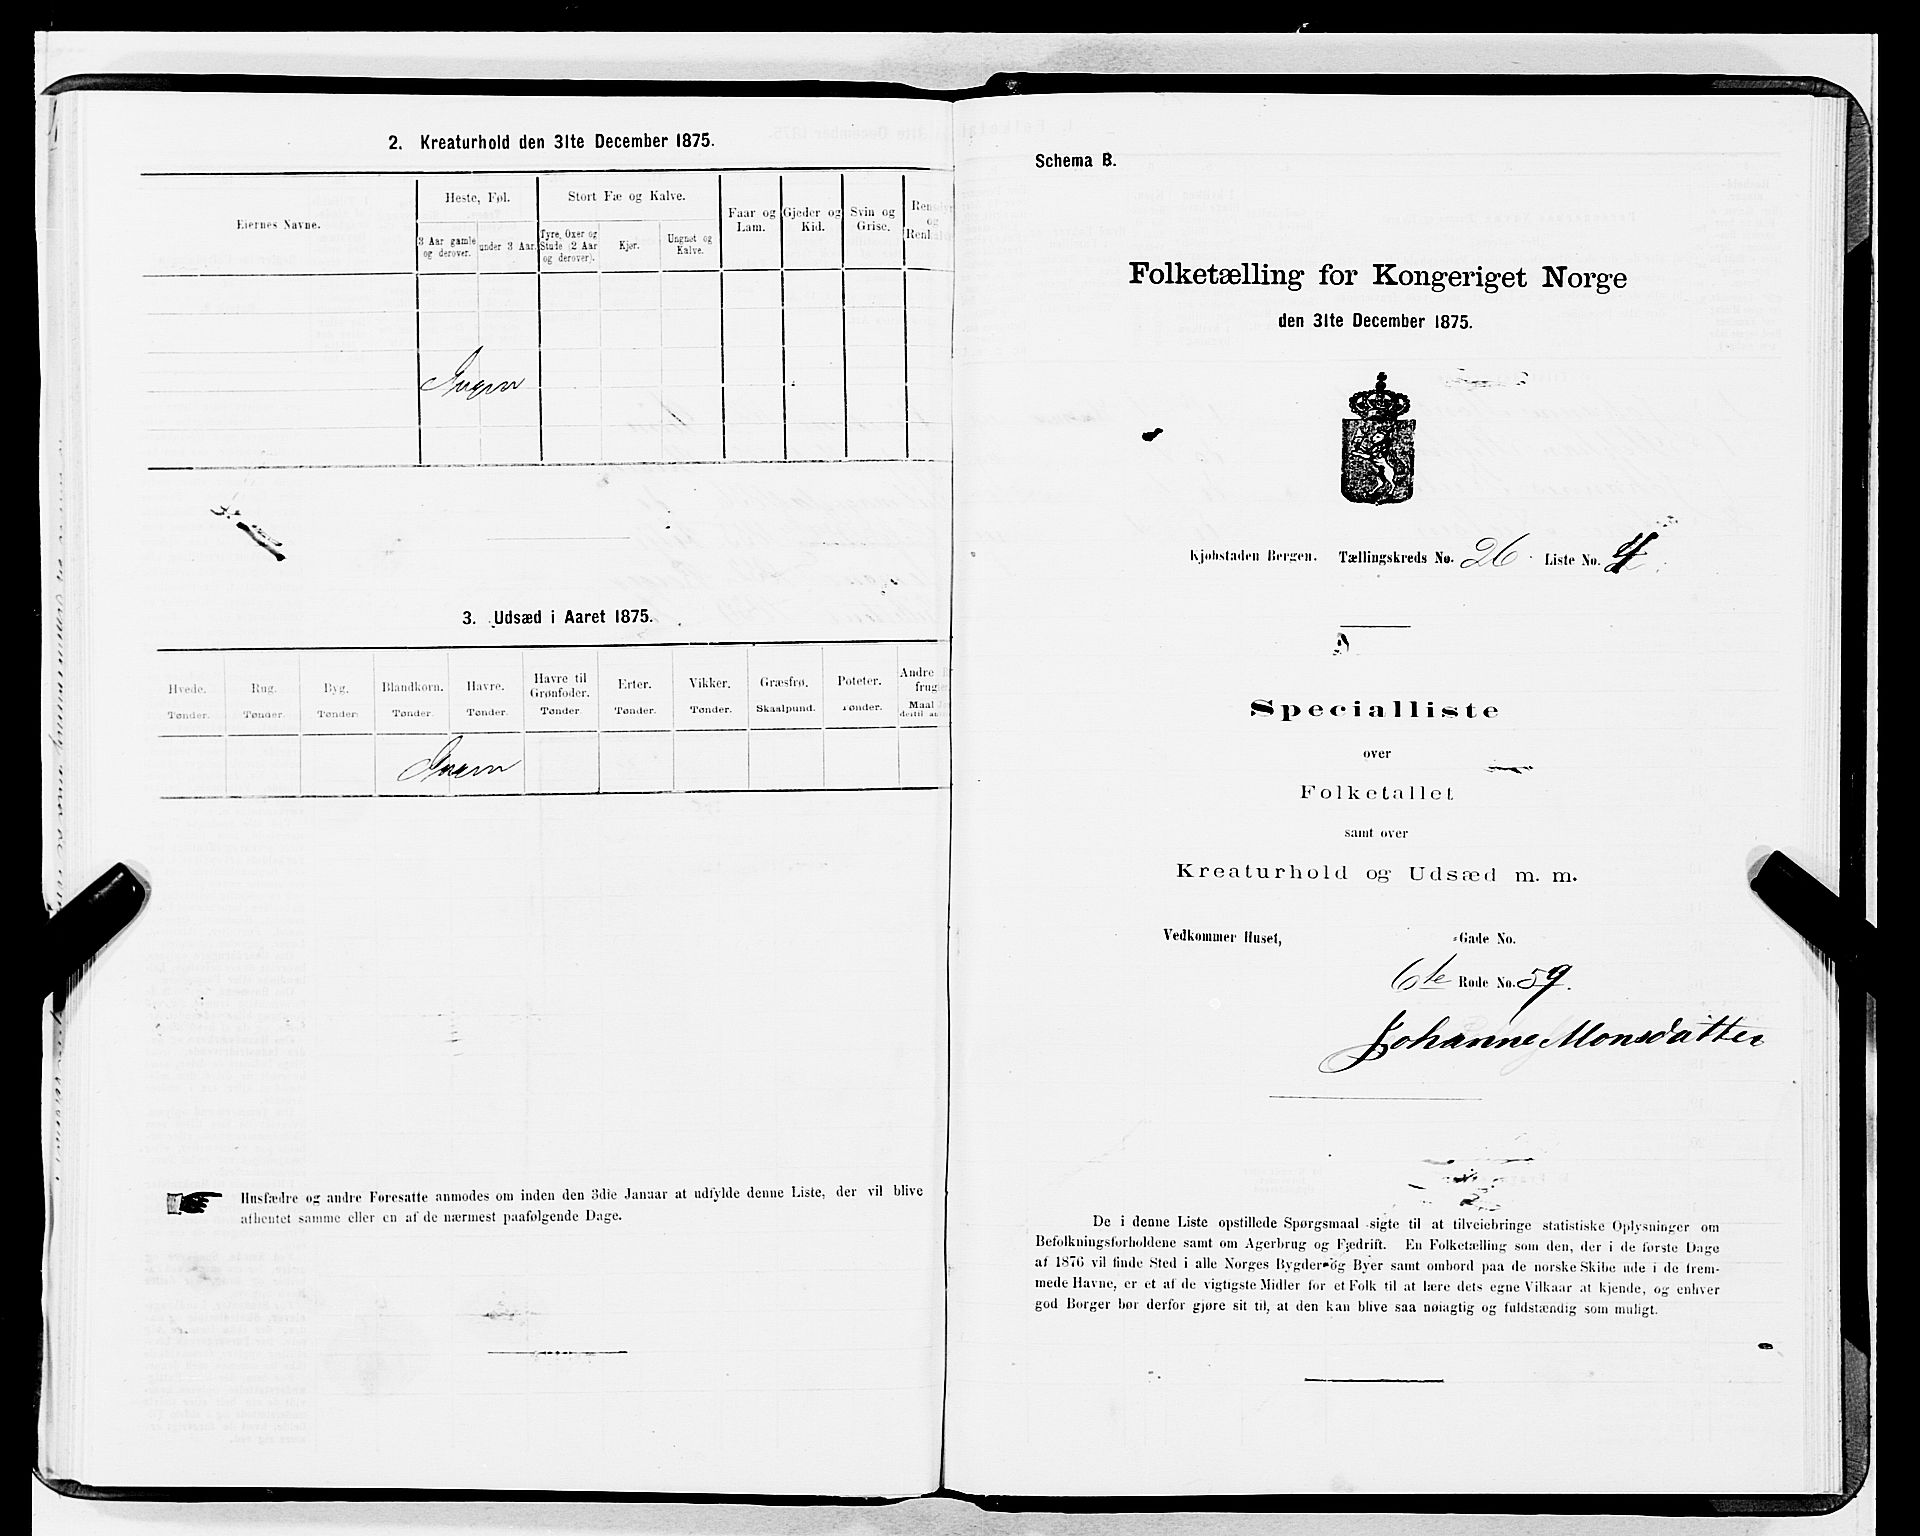 2. Kreaturhold den 31te December 1875.
Eiernes Navne.
Heste, Føl.
Stort Fæ og Kalve.
Faar og Lam.
Gjeder og Kid.
Svin og Grise.
3 Aar gamle og derover.
under 3 Aar.
Tyre, Oxer og Stude (2 Aar og derover).
Kjør.
Ungnøt og Kalve.
Ingen
3. Udsæd i Aaret 1875.
Hvede.
Rug.
Byg.
Blandkorn.
Havre.
Havre til Grønfoder.
Erter.
Vikker.
Græsfrø.
Poteter.
Andre
Tønder.
Tønder.
Tønder.
Tønder.
Tønder.
Tønder.
Tønder.
Tønder.
Skaalpund.
Tønder.
Maal
Ingen
Husfædre og andre Foresatte anmodes om inden den 3die Januar at udfylde denne Liste, der vil blive
afhentet samme eller en af de nærmest paafølgende Dage.
Schema B.
Folketælling for Kongeriget Norge
den 31te December 1875.
Kjøbstaden Bergen. Tællingskreds No. 26. Liste No. 4
Specialliste
over
Folketallet
samt over
Kreaturhold og Udsæd m. m.
Vedkommer Huset, Gade No.
6te Rode No. 59.
Johanne Monsdatter
De i denne Liste opstillede Spørgsmaal sigte til at tilveiebringe statistiske Oplysninger om
Befolkningsforholdene samt om Agerbrug og Fædrift. En Folketælling som den, der i de første Dage
af 1876 vil finde Sted i alle Norges Bygder og Byer samt ombord paa de norske Skibe ude i de frem-
mede Havne, er et af de vigtigste Midler for et Folk til at lære dets egne Vilkaar at kjende, og enhver
god Borger bør derfor gjøre sit til, at den kan blive saa nøiagtig og fuldstændig som muligt.